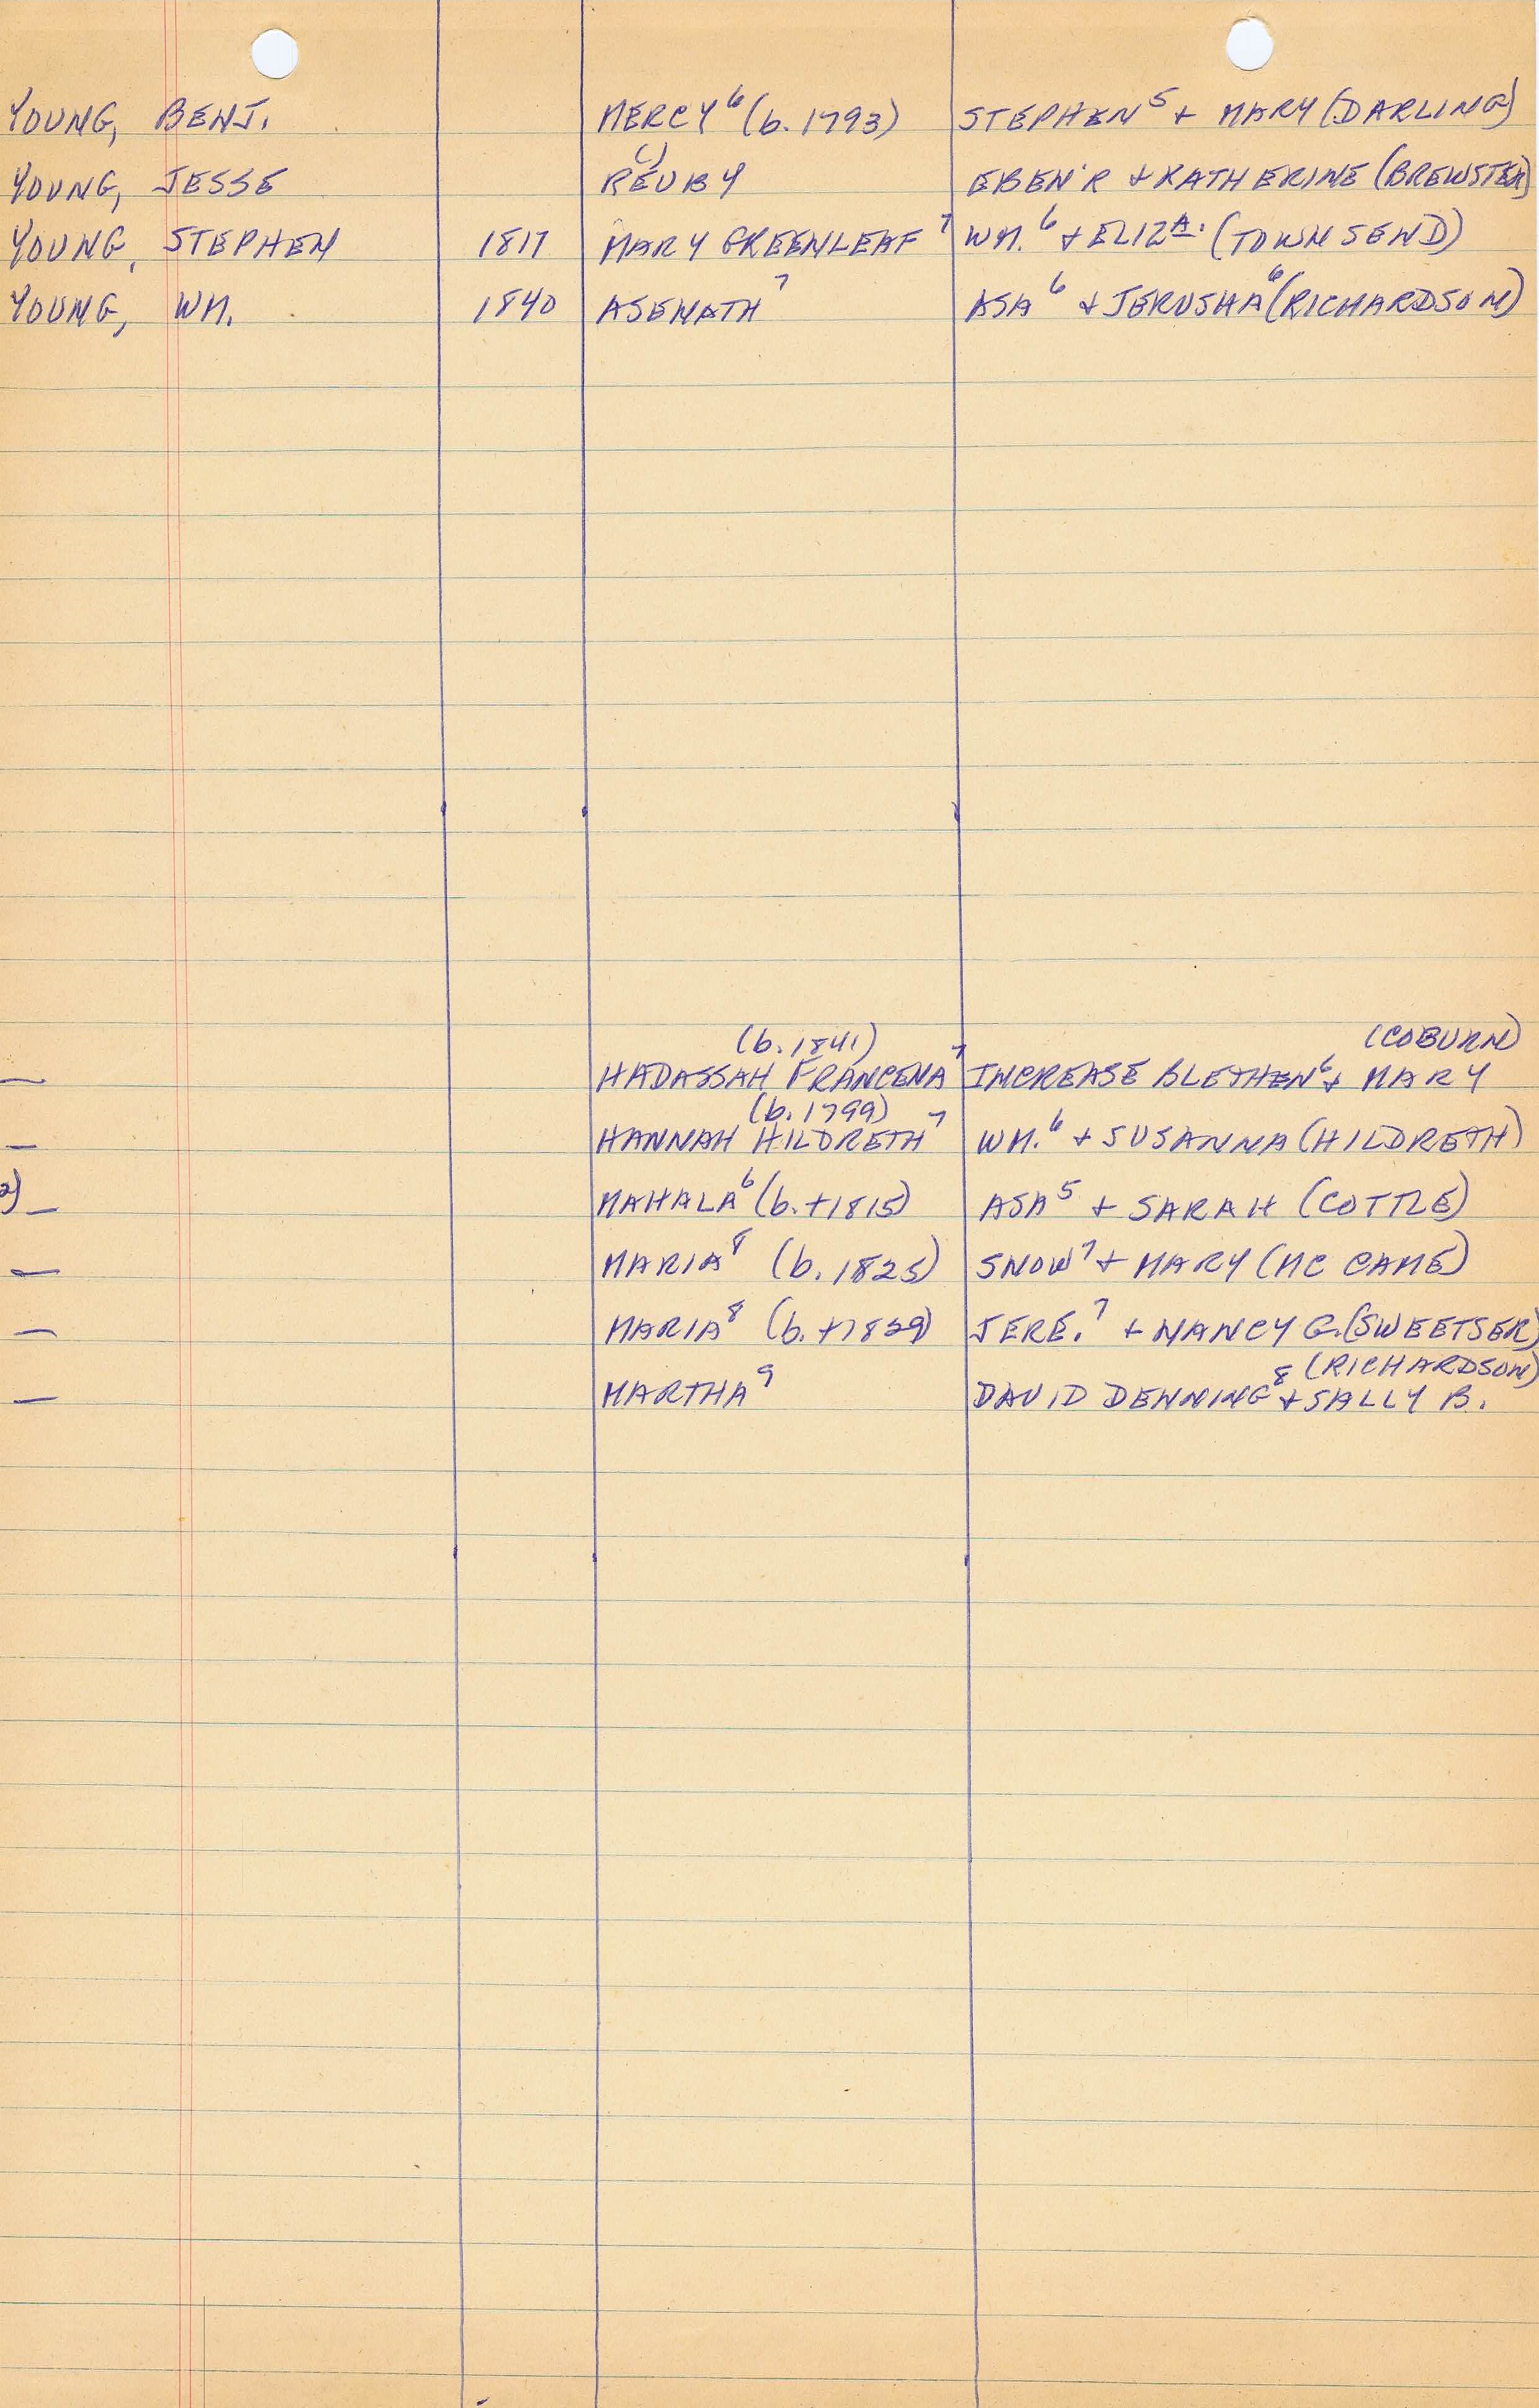 YOUNG, BENJ. MERCY⁶ (b. 1793) STEPHEN⁵ + MARY (DARLING)
YOUNG, JESSE REUBY EBEN'R + KATHERINE (BREWSTER)
YOUNG, STEPHEN 1817 MARY GREENLEAF⁷ WM.⁶ + ELIZA. (TOWNSEND)
YOUNG, WM. 1840 ASENATH⁷ ASA⁶ + JERUSHA⁶ (RICHARDSON)
(b. 1841) (COBURN)
— HADASSAH FRANCENA⁷ INCREASE BLETHEN⁶ + MARY
(b. 1799)
— HANNAH HILDRETH⁷ WM.⁶ + SUSANNA (HILDRETH)
— MAHALA⁶ (b. +1815) ASA⁵ + SARAH (COTTLE)
— MARIA⁸ (b. 1825) SNOW⁷ + MARY (MC CAME)
— MARIA⁸ (b. +1829) JERE.⁷ + NANCY G. (SWEETSER)
(RICHARDSON)
— MARTHA⁹ DAVID DENNING⁸ + SALLY B.